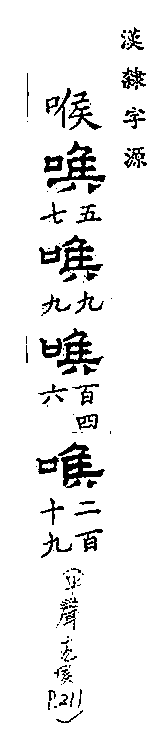 漢隸字源
喉
五七
九九
百四六
二百十九
(平聲尤侯
P.211)